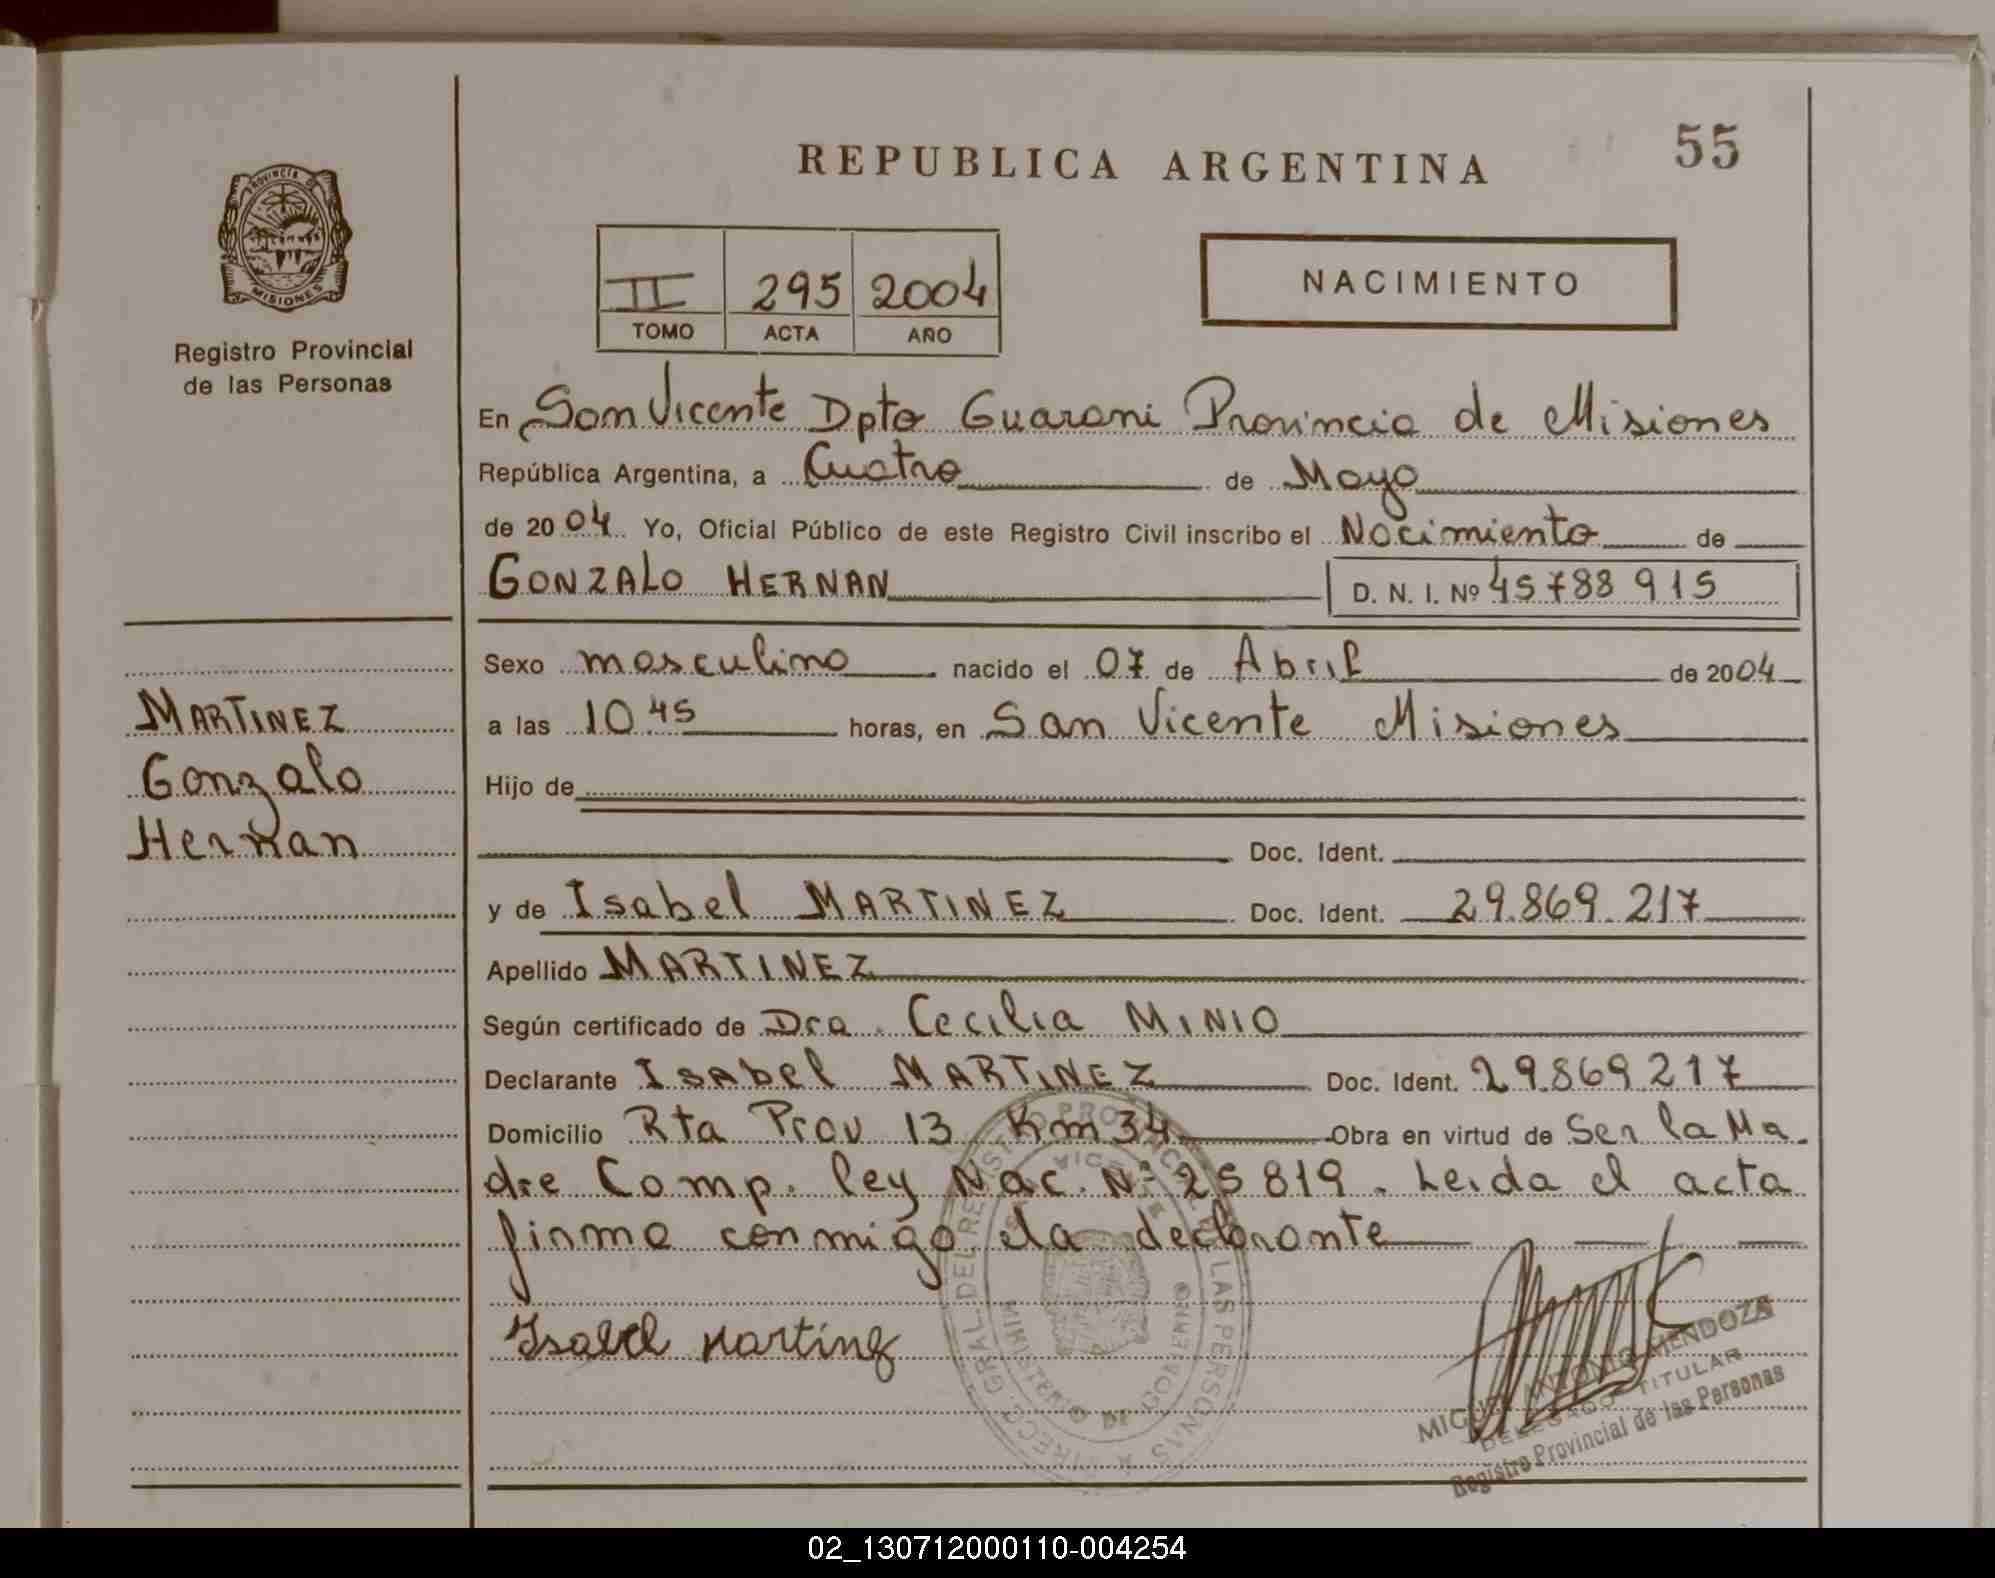 55
REPUBLICA ARGENTINA
PROVINCIA DE
MISIONES
Registro Provincial
de las Personas
NACIMIENTO
II 295 2004
TOMO ACTA AÑO
En San Vicente Dpto Guarani Provincia de Misiones
República Argentina, a Cuatro de Mayo
de 2004 Yo, Oficial Público de este Registro Civil inscribo el Nacimiento de
GONZALO HERNAN D. N. I. Nº 45788915
Sexo masculino nacido el 07 de Abril de 2004
a las 10.45 horas, en San Vicente Misiones
MARTINEZ
Gonzalo
Hernan
Hijo de
Doc. Ident.
y de Isabel MARTINEZ Doc. Ident. 29.869.217
Apellido MARTINEZ
Según certificado de Dra. Cecilia MINIO
Declarante Isabel MARTINEZ Doc. Ident. 29.869217
Domicilio Rta Prov 13 Km 34 Obra en virtud de Ser la Ma-
dre Comp. ley Nac. Nº 25819. Leida el acta
firma conmigo la declarante
Isabel Martinez
MIGUEL ANTONIO MENDOZA
DELEGADO TITULAR
Registro Provincial de las Personas
02_130712000110-004254